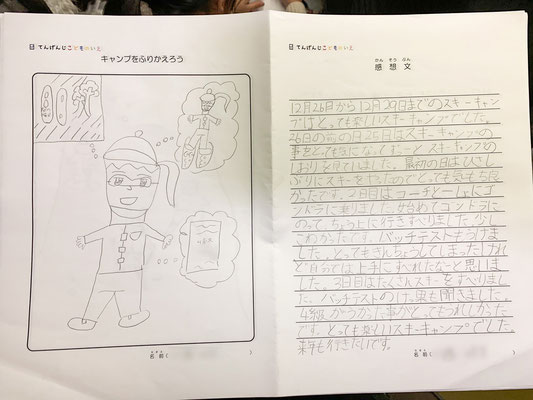 てんげんじこどもといえ
キャンプをふりかえろう
名前（　　　）
てんげんじこどもといえ
感想文
12月26日から12月29日までのスキーキャン
プはとっても楽しいスキーキャンプでした。
26日の前の日25日はスキーキャンプの
事をとっても気になってずーっとスキーキャンプの
しおりを見ていました。最初の日はひさし
ぶりにスキーをすったのでとっても気もち良
かったです。2日目はコーチと一しょにゴ
ンドラに乗りました。始めてゴンドラに
のって ちょう上に行きすべりました。少し
こわかったです。バッチテストもうけま
した。とってもきんちょうしてしまったけれ
ど自分では上手にすべれたなーと思いま
した。3日目はたくさんスキーをすべりまし
た。バッチテストのけっ果も聞きました。
4級がうかった事がとってもうれしかった
です。とっても楽しいスキーキャンプでした。
来年も行きたいです。
名前（　　　）